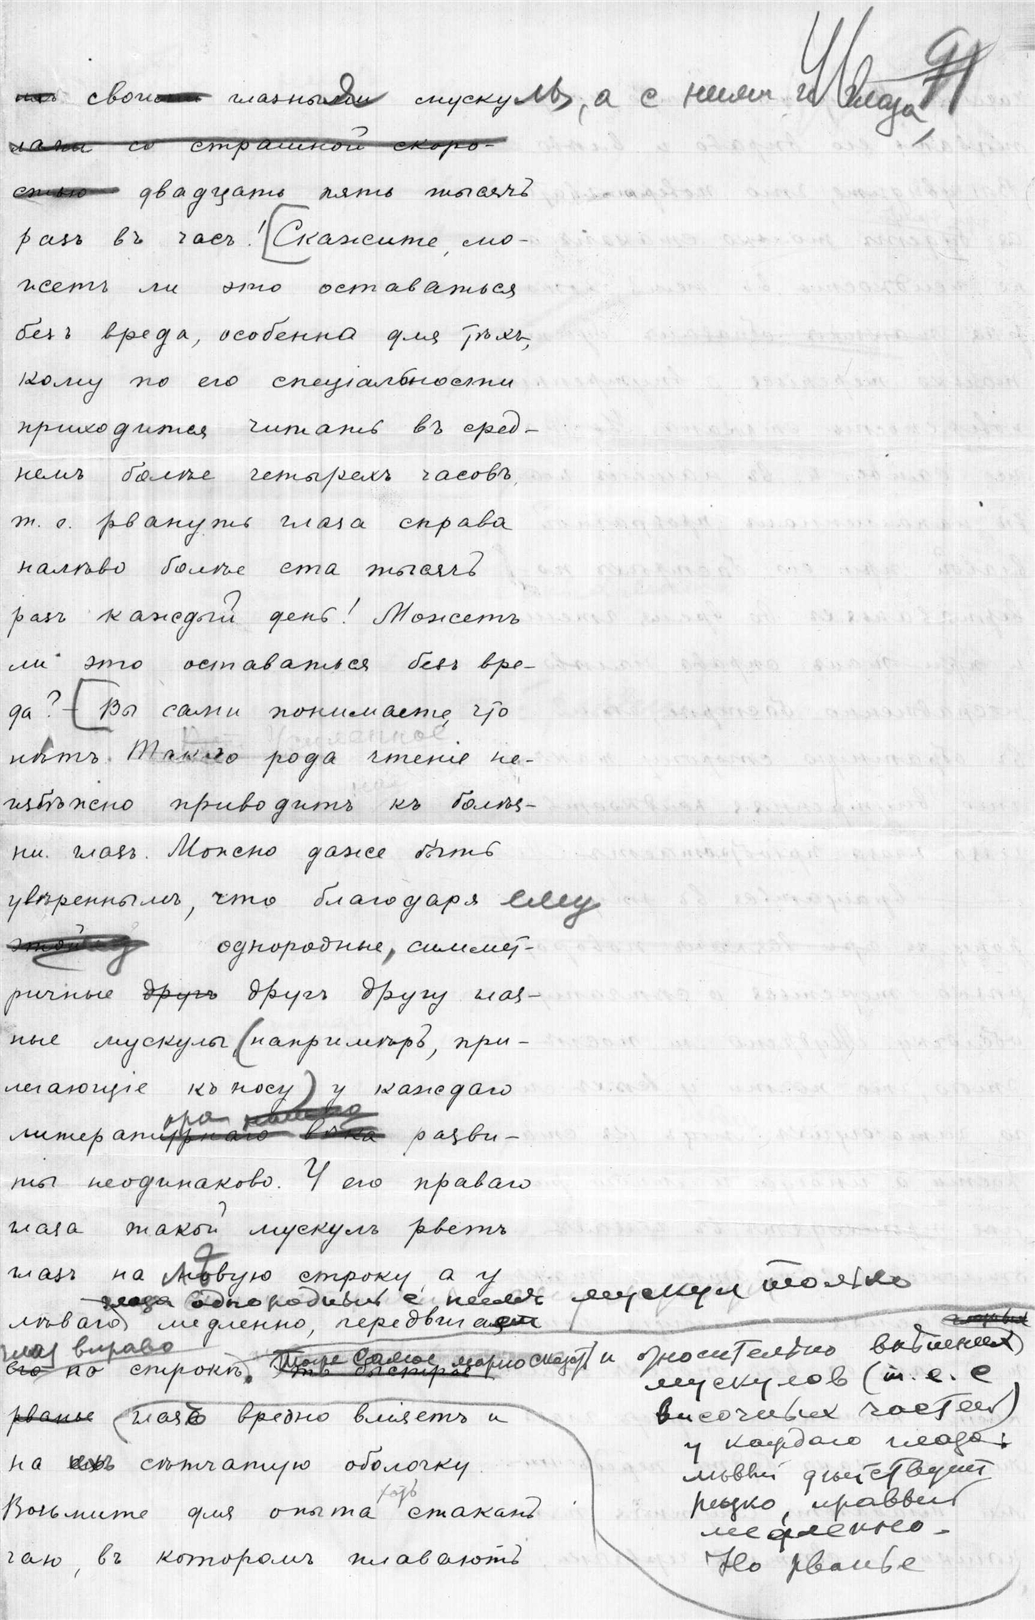 91
своя глазныя мускулы, а с ними и глаза,
лами со страшной скоро-
стью двадцать пять тысячъ
разъ въ часъ! [Скажите, мо-
жетъ ли это оставаться
безъ вреда, особенна для тѣхъ,
кому по его спеціальности
приходится читать въ сред-
немъ болѣе четырехъ часовъ,
т. е. рвануть глаза справа
налѣво болѣе ста тысячъ
разъ каждый день! Можетъ
ли это оставаться безъ вре-
да? – [Вы сами понимаете, что
Усиленное
нѣтъ. Такого рода чтеніе не-
избѣжно приводитъ къ болѣз-
ни глазъ. Можно даже быть
увѣреннымъ, что благодаря ему
однородные, симмет-
ричные другъ другъ другу глаз-
ные мускулы (напримѣръ, при-
легающіе къ носу) у каждаго
ора
литературнаго вѣка разви-
ты неодинаково. У его праваго
глаза такой мускулъ рветъ
глазъ на новую строку, а у
глаза однородный с нимъ мускул только
лѣваго медленно, передвигает
глаз вправо
его по строкѣ. Тоже самое можно сказать и относительно внѣшних
мускулов (т. е. с
височных частей)
у каждаго глаза:
лѣвый дѣйствует
рѣзко, правый
медленно. –
Но рванье
рванье глазъ вредно вліяетъ и
на ихъ сѣтчатую оболочку.
хоть
Возьмите для опыта стаканъ
чаю, въ которомъ плаваютъ